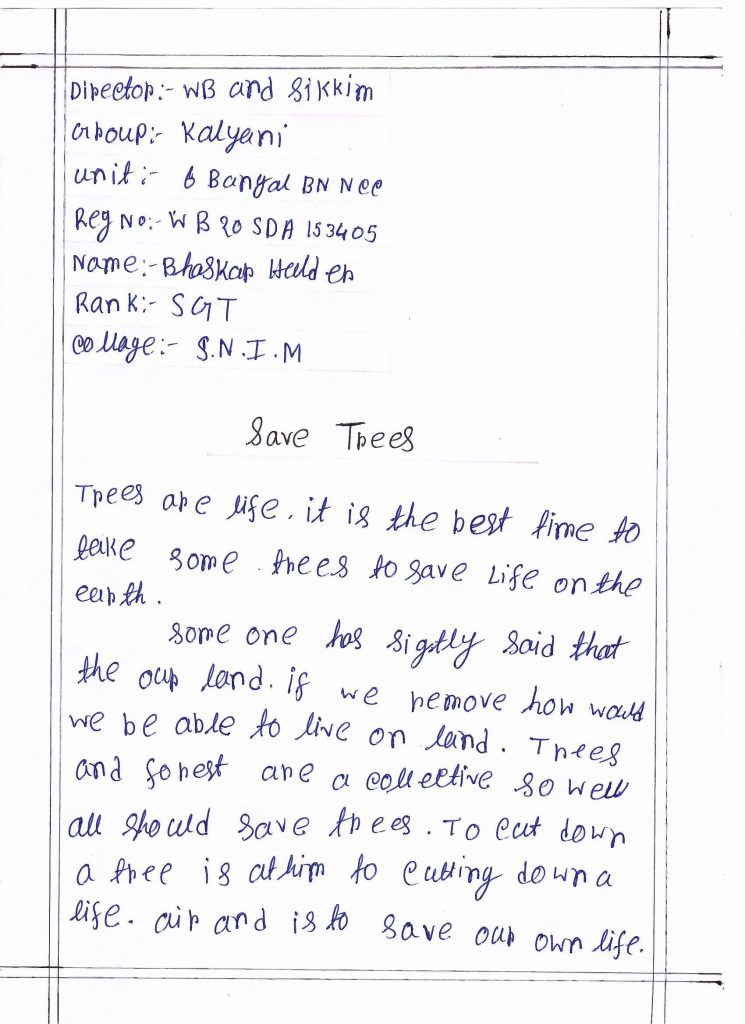 Director:- WB and Sikkim
Group:- Kalyani
Unit:- 6 Bangal BN Ncc
Reg No:- WB20 SDA 153405
Name:- Bhaskar Halder
Rank:- SGT
Collage:- S.N.I.M
Save Trees
Trees are life. it is the best time to
take some trees to save Life on the
earth.
some one has sigtly said that
the our land. if we remove how would
we be able to live on land. Trees
and forest are a collective so well
all should save trees. To cut down
a tree is to cutting down a
life. air and is to save our own life.